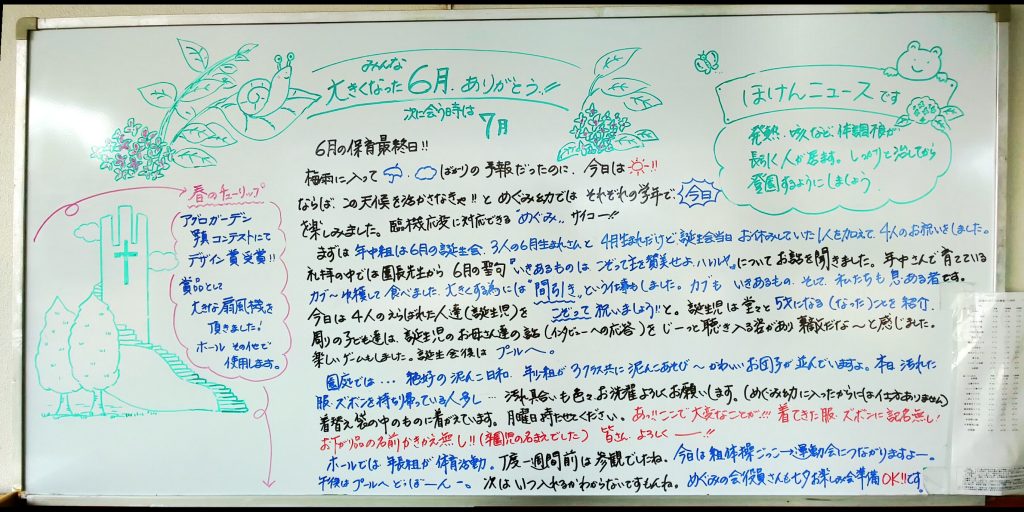 みんな
大きくなった 6月. ありがとう!!
次に会う時は 7月
ほけんニュースです
発熱. 咳など. 体調
長引く人が居ます。しっかりと治してから
登園するようにしましょう.
春のチューリップ
アグロガーデン
写真コンテストにて
デザイン賞受賞!!
賞品として
大きな扇風機を
頂きました!
ホール その他で
使用します。
6月の保育最終日!!
梅雨に入って ばかりの 予報だったのに. 今日は -!!
ならば、この天候を活かさなきゃ!! と めぐみ幼では それぞれの学年で, 今日
を楽しみました。臨機応変に対応できる"めぐみ"。サイコー!!
まずは 年中組は6月の誕生会. 3人の6月生まれさんと 4月生まれだけど誕生会当日 お休みしていた1人を加えて. 4人のお祝いをしました。
礼拝の中では園長先生から 6月の聖句『いきあるものは こぞって主を賛美せよ. ハレルヤ。』についてお話を聞きました。年中さんで育てている
カブ〜収穫して食べました. 大きくする為には"間引き"という仕事もしました。カブも いきあるもの. そして. 私たちも 息ある者です。
今日は 4人のえらばれた人達(誕生児)を こぞって 祝いましょう!! と。誕生児は 堂々と 5才になる(なった)ことを 紹介.
周りの子ども達は、誕生児のお母さん達の話(インタビューへの応答)を じーっと聴き入る姿があり 素敵だな〜と感じました。
楽しいゲームもしました。誕生会後は プールへ。
園庭では… 絶好の泥んこ日和. 年少組が 2クラス共に 泥んこあそび〜 かわいいお団子が 並んでいますよ。本日 汚れた
服. ズボンを持ち帰っている人多し… 汚れ具合いも色々. お洗濯 よろしくお願いします。(めぐみ幼に入ったからには仕方ありません)
着替え袋の中のものに着がえています。月曜日持たせてください。あっ!! ここで 大変なことが!!! 着てきた服 ズボンに記名無し!
お下がり品の名前かきかえ無し!!(卒園児の名まえでした) 皆さん よろしく ー!!
ホールでは 年長組が 体育活動。丁度一週間前は 参観でしたね. 今日は 組体操ごっこ→運動会につながりますよー。
午後は プールへ どぼーん ー。次は いつ入れるかわからないですもんね。めぐみの会役員さんも七夕お楽しみ会準備 OK!!です。